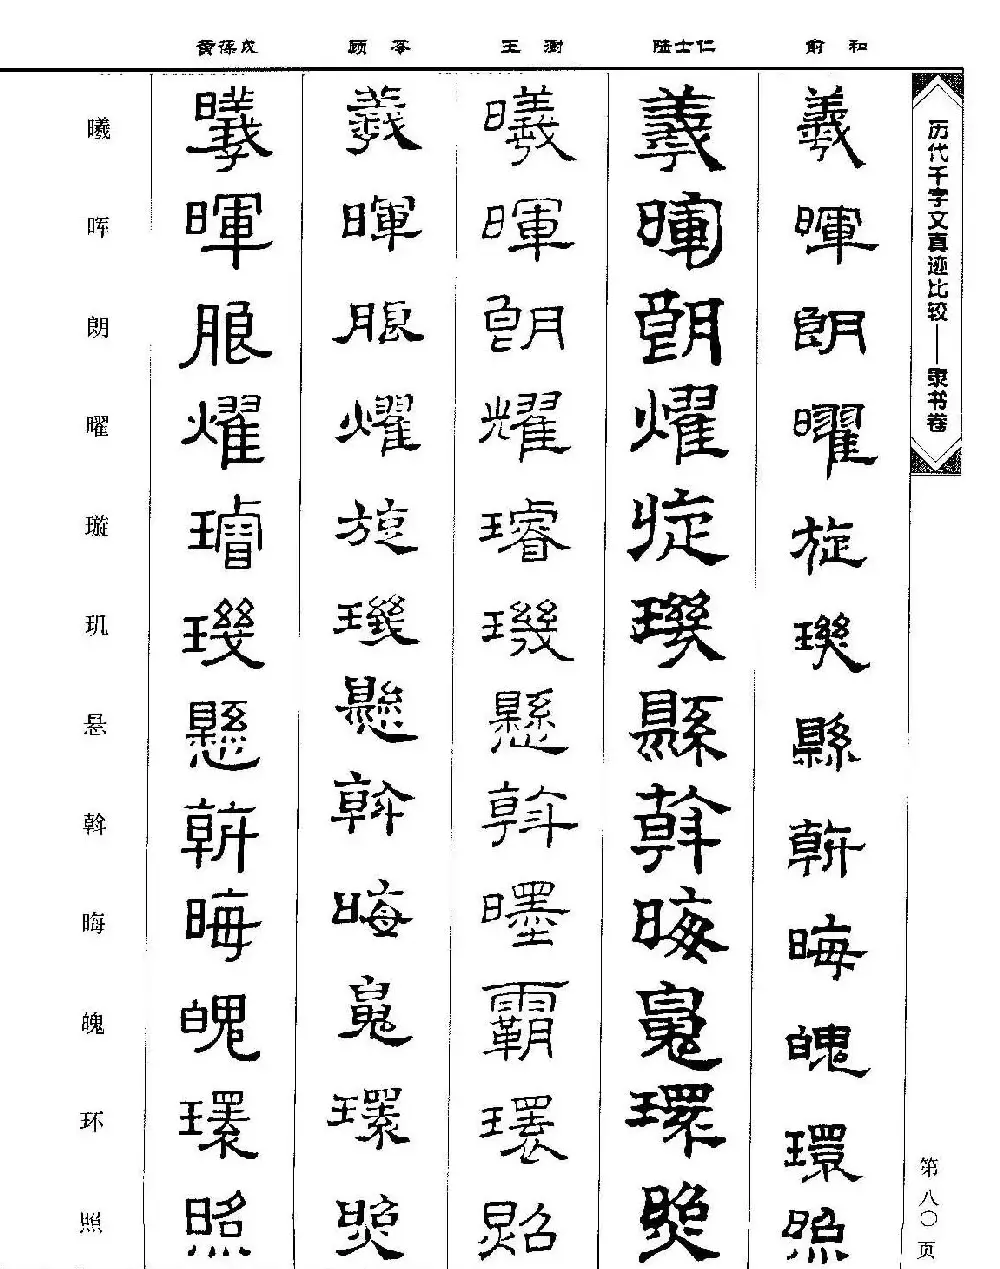 黄葆戉 顾苓 王澍 陆士仁 俞和
历代千字文真迹比较——隶书卷
曦 曦 羲 曦 羲 羲
晖 暉 暉 暉 暉 暉
朗 朗 朗 朗 朗 朗
曜 燿 燿 耀 燿 曜
璇 璿 旋 璿 旋 旋
玑 璣 璣 璣 璣 璣
悬 懸 懸 懸 縣 縣
斡 斡 斡 斡 斡 斡
晦 晦 晦 晦 晦
魄 魄 魄 霸 魄 魄
环 環 環 環 環 環
照 照 照 照 照 照
第八〇页